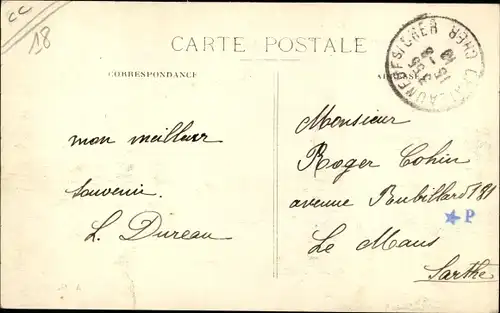 CC
18
CARTE POSTALE
CORRESPONDANCE
ADRESSE
mon meilleur
souvenir.
L. Dureau
Monsieur
Roger Cohin
avenue Rubillard 181
Le Mans
Sarthe
P